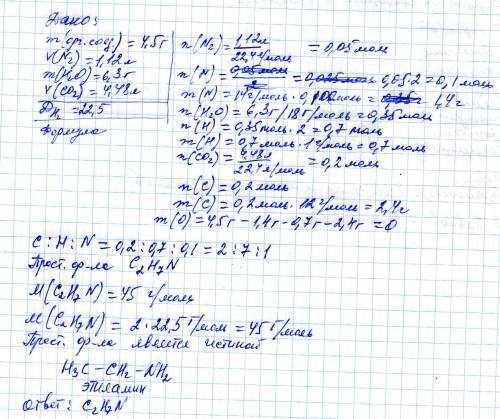 Дано:
m(ор. соед.) = 4,5г
V(N₂) = 1,12л
m(H₂O) = 6,3г
V(CO₂) = 4,48л
D H₂ = 22,5
Формула
n(N₂) = 1,12л / 22,4л/моль = 0,05 моль
n(N) = 0,05·2 = 0,1 моль
m(N) = 14г/моль · 0,1 моль = 1,4г
n(H₂O) = 6,3г/18г/моль = 0,35моль
n(H) = 0,35моль · 2 = 0,7 моль
m(H) = 0,7моль · 1г/моль = 0,7 моль
n(CO₂) = 4,48л / 22,4л/моль = 0,2 моль
n(C) = 0,2моль
m(C) = 0,2моль · 12г/моль = 2,4г
m(O) = 4,5г - 1,4г - 0,7г - 2,4г = 0
C : H : N = 0,2 : 0,7 : 0,1 = 2 : 7 : 1
Прост. ф-ла C₂H₇N
M(C₂H₇N) = 45 г/моль
M(C₂H₇N) = 2·22,5г/моль = 45г/моль
Прост. ф-ла является истиной
H₃C - CH₂ - NH₂
этиламин
Ответ: C₂H₇N